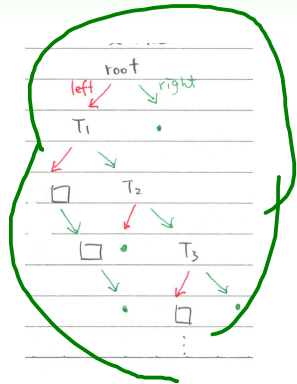 root
left right
T1
T2
T3